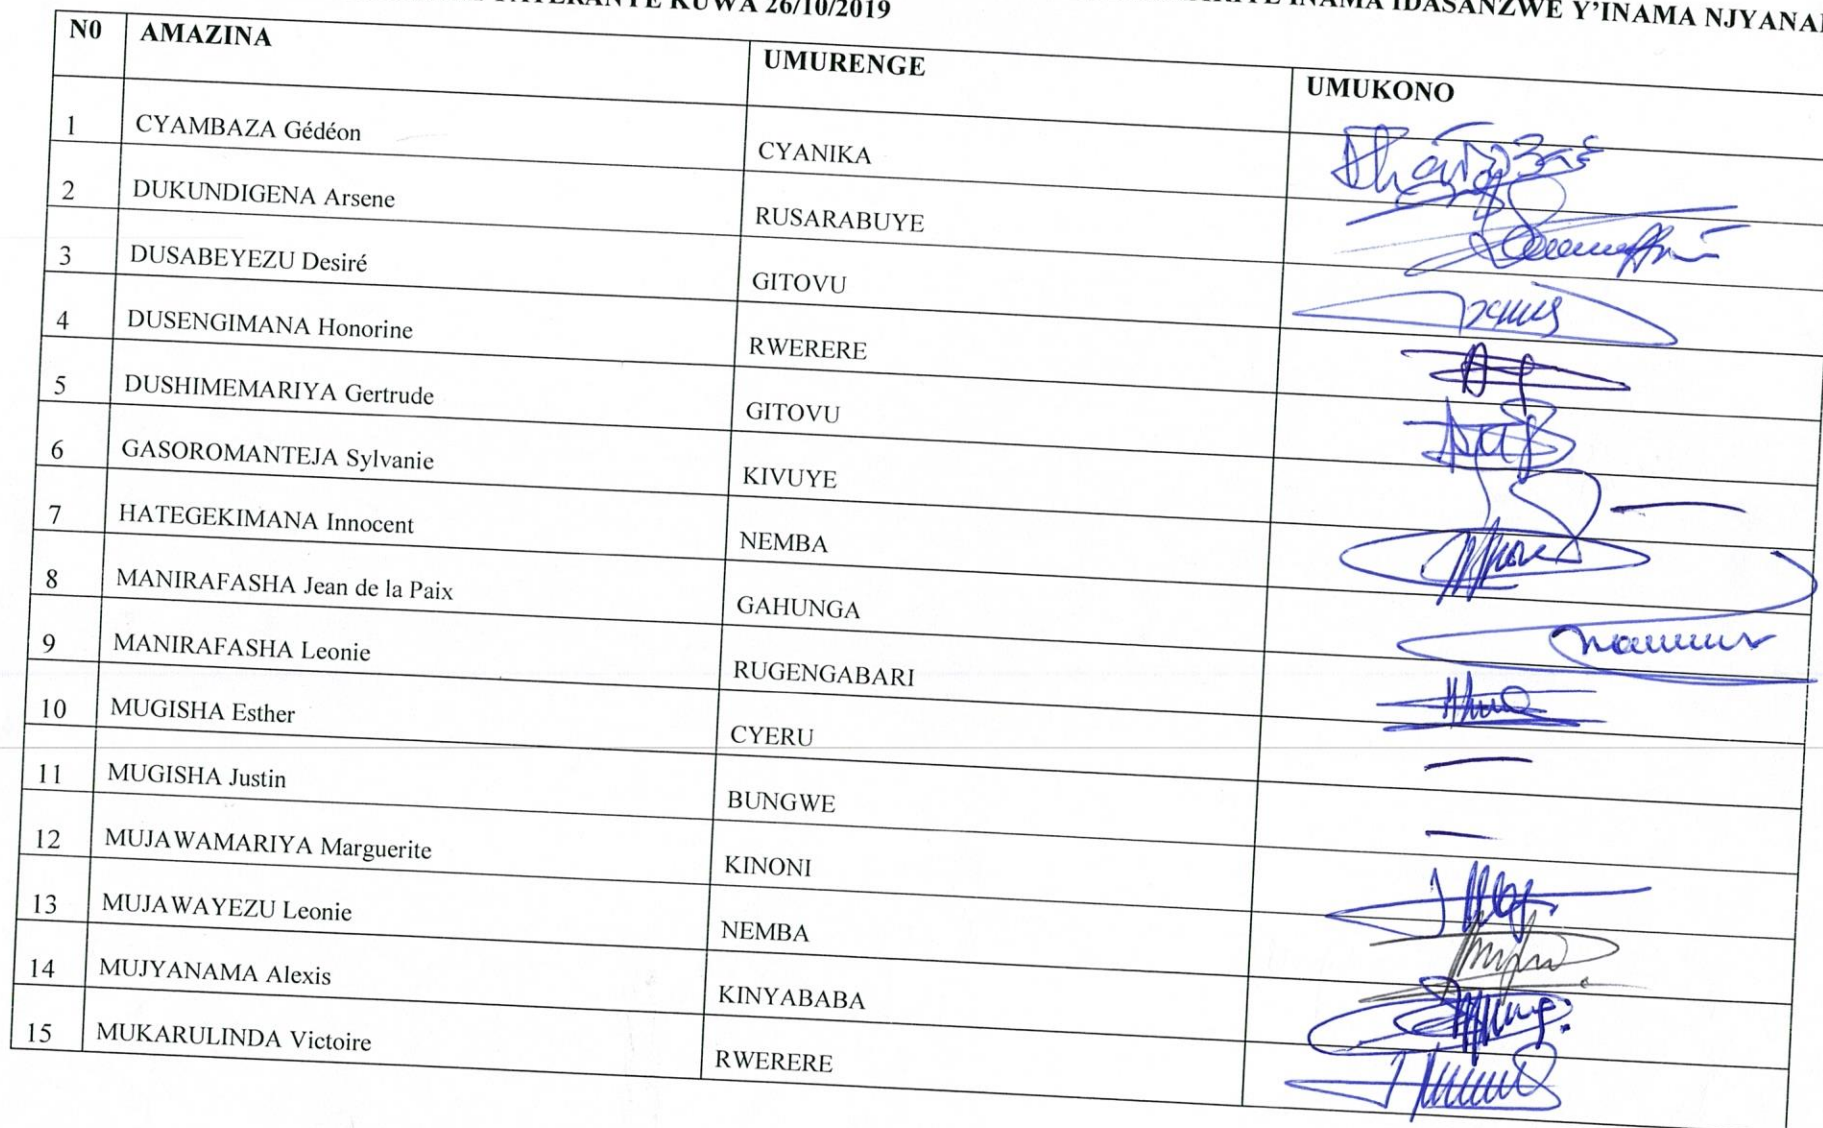 KUWA 26/10/2019
INAMA IDASANZWE Y'INAMA
N0 AMAZINA UMURENGE UMUKONO
1 CYAMBAZA Gédéon CYANIKA
2 DUKUNDIGENA Arsene RUSARABUYE
3 DUSABEYEZU Desiré GITOVU
4 DUSENGIMANA Honorine RWERERE
5 DUSHIMEMARIYA Gertrude GITOVU
6 GASOROMANTEJA Sylvanie KIVUYE
7 HATEGEKIMANA Innocent NEMBA
8 MANIRAFASHA Jean de la Paix GAHUNGA
9 MANIRAFASHA Leonie RUGENGABARI
10 MUGISHA Esther CYERU
11 MUGISHA Justin BUNGWE
12 MUJAWAMARIYA Marguerite KINONI
13 MUJAWAYEZU Leonie NEMBA
14 MUJYANAMA Alexis KINYABABA
15 MUKARULINDA Victoire RWERERE